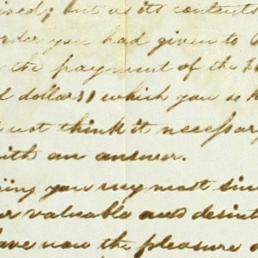 ised; but as its contents
you had given to
the payment of the
dollars) which you
not think it necessary
with an answer.
ing you my most sin
or valuable and desin
have now the pleasure